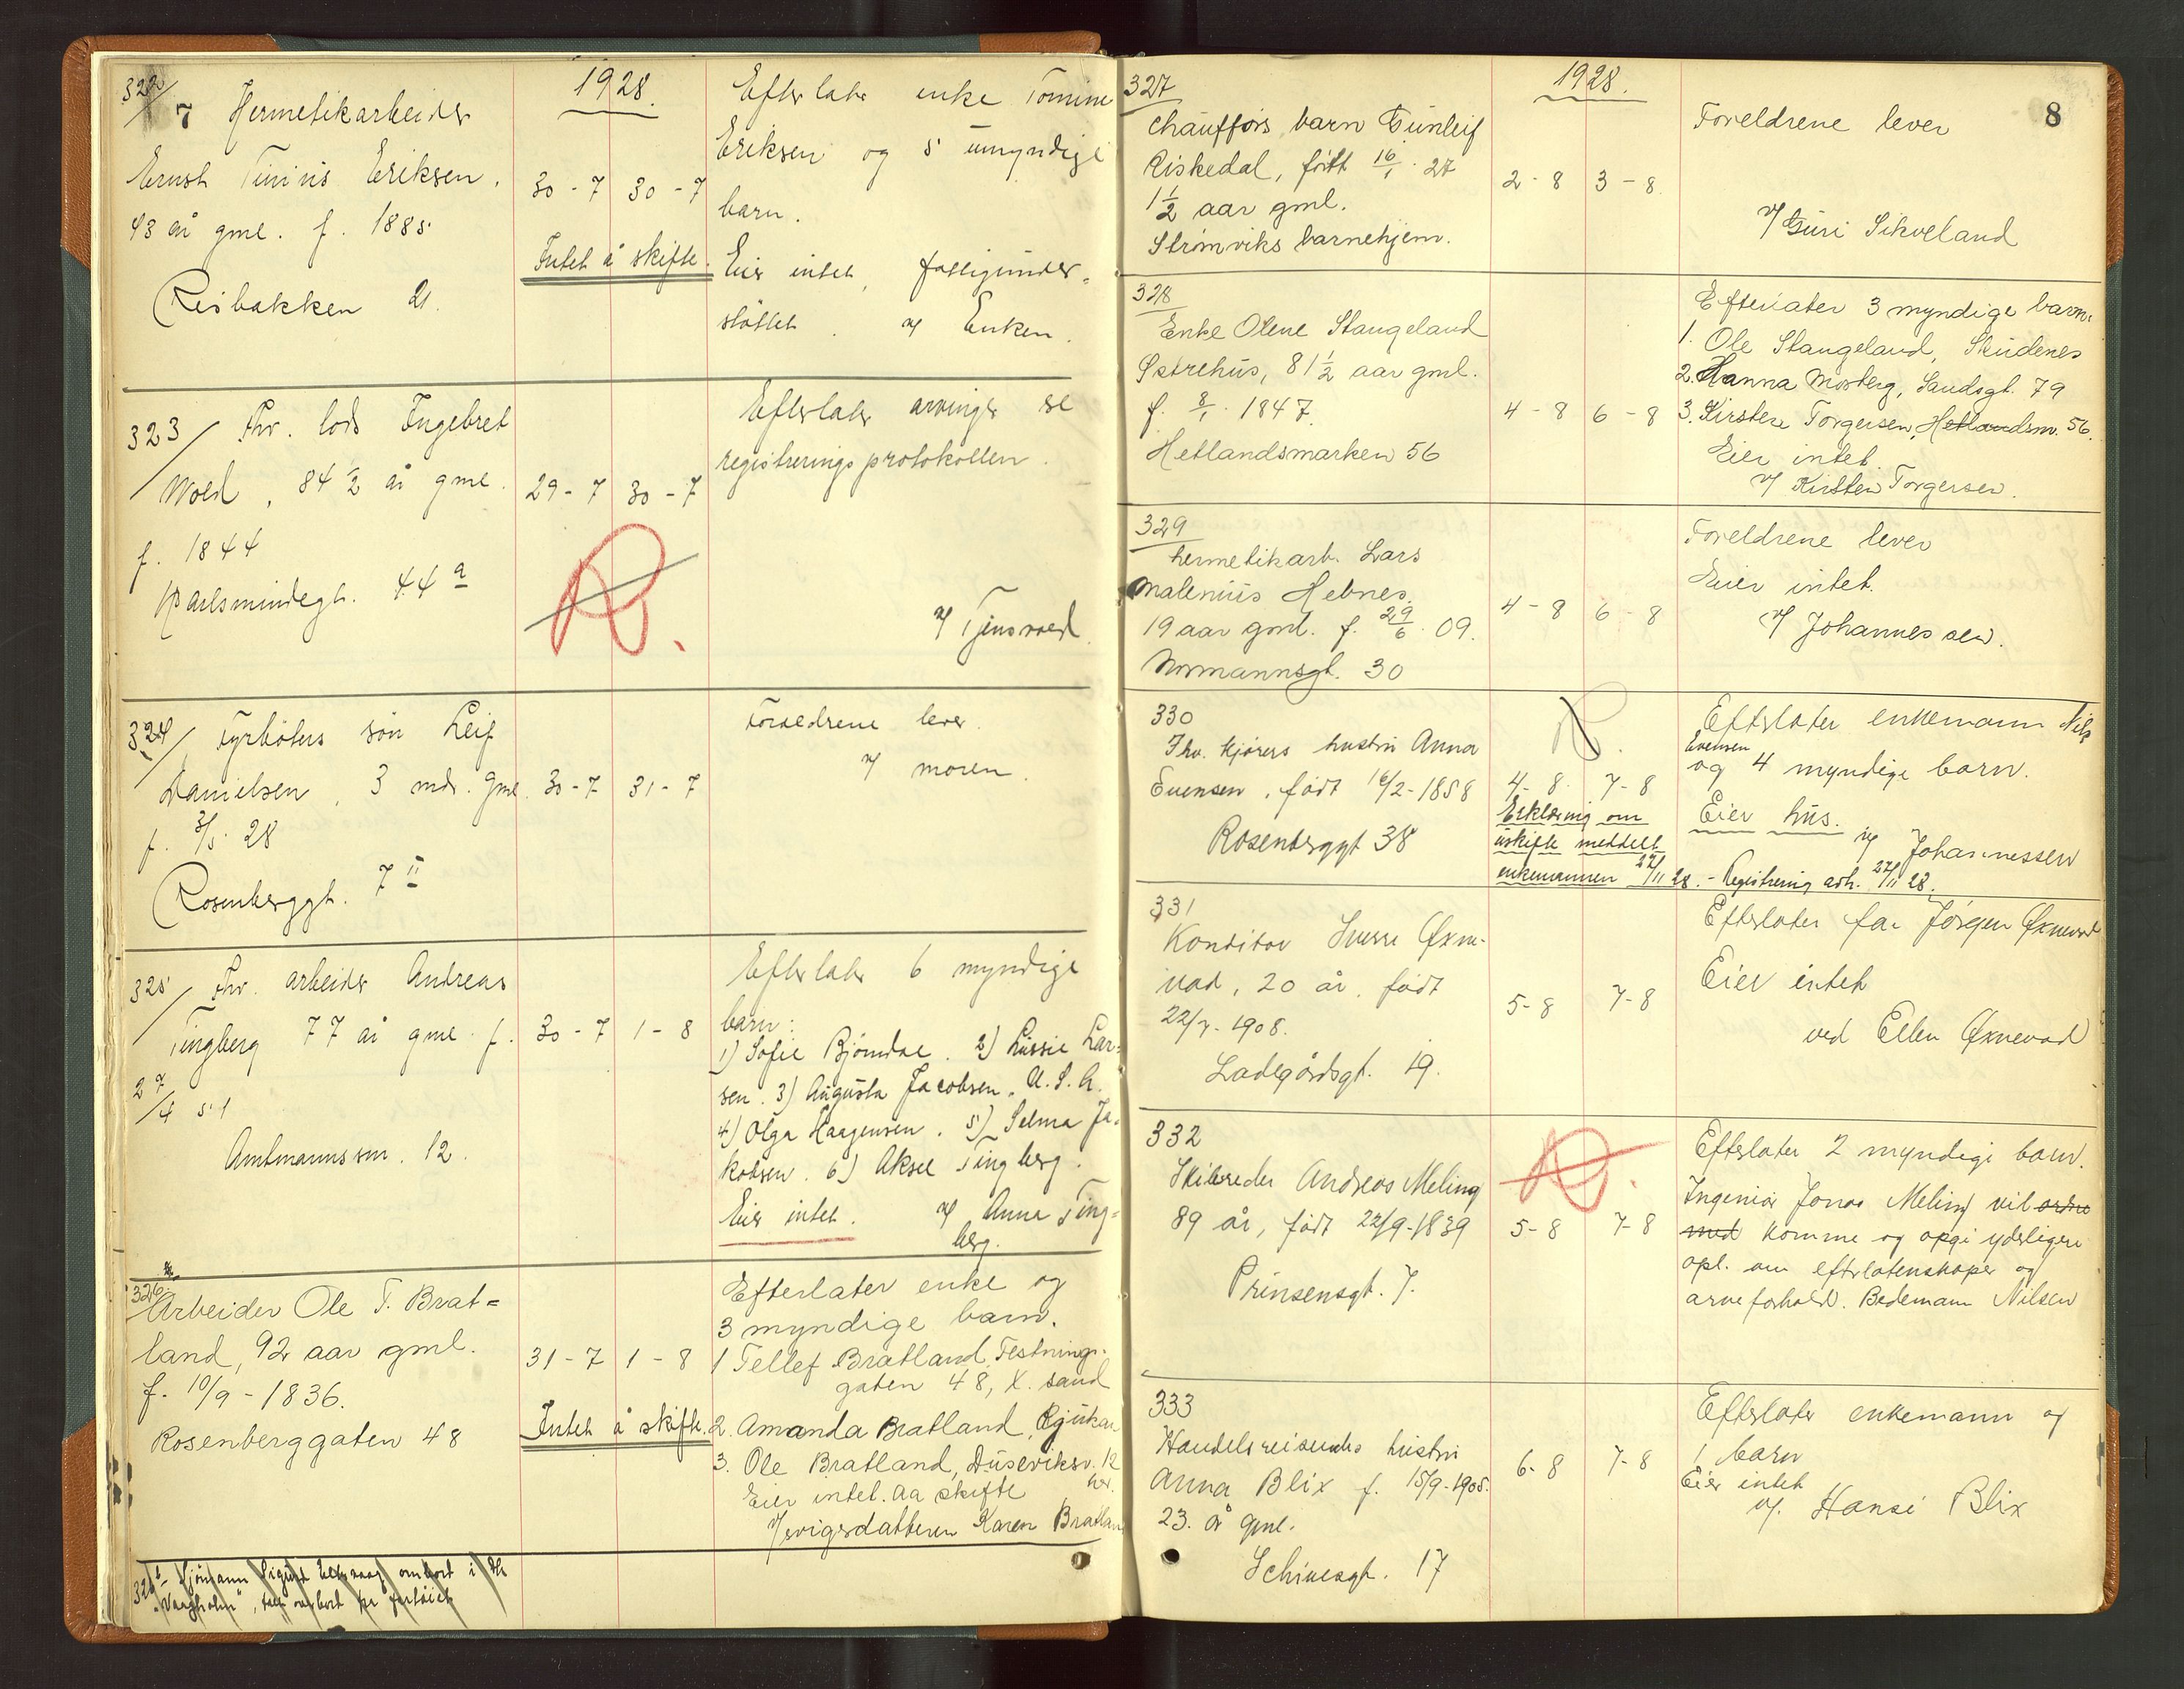 322/
7 Hermetikarbeider
Ernst Tinius Eriksen,
43 år gml. f. 1885
Risbakken 21.
1928.
30 - 7 30 - 7
Intet å skifte.
Efterlater enke Tomine
Eriksen og 5 umyndige
barn.
Eier intet, fattigunder-
støttet. v/ Enken.
323/ Fhv. lods Ingebret
Wold, 84 1/2 år gml.
f. 1844
Karlsmindegt. 44 a
29 - 7 30 - 7
R.
Efterlater arvinger se
registreringsprotokollen.
v/ Tjensvold
324/ Fyrbøters søn Leif
Danielsen, 3 mdr. gml.
f. 3/5 28
Rosenberggt. 7 II
30 - 7 31 - 7
Foreldrene lever.
v/ moren.
325/ Fhv. arbeider Andreas
Tingberg 77 år gml. f.
27/4 51
Amtmannssm. 12.
30 - 7 1 - 8
Efterlater 6 myndige
barn:
1) Sofie Bjørndal. 2) Lussie Lar-
sen. 3) Augusta Jacobsen, U.S.A.
4) Olga Haagensen. 5) Selma Ja-
kobsen. 6) Aksel Tingberg.
Eier intet. v/ Anna Ting-
berg.
326
Arbeider Ole T. Brat=
land, 92 aar gml.
f. 10/9 - 1836.
Rosenberggaten 48
31 - 7 1 - 8
Intet å skifte.
Efterlater enke og
3 myndige barn.
1 Tellef Bratland, Festnings-
gaten 48, K. sand
2. Amanda Bratland, Rjukan
3. Ole Bratland, Duseviksv. 12
her.
Eier intet. aa skifte
v/ svigerdatteren Karen Bratland
326 Sjømann Sigurd ombord i
"Vargholm", ombord
327
chaufførs barn Gunleif
Riskedal, født 16/1 27
1 1/2 aar gml.
Strømviks barnehjem.
1928.
2 - 8 3 - 8
8
Foreldrene lever
v/ Guri Sikveland
328
Enke Olene Stangeland
Sætrehus, 81 1/2 aar gml.
f. 8/1 1847.
Hetlandsmarken 56
4 - 8 6 - 8
Efterlater 3 myndige barn.
1. Ole Stangeland, Skudenes
2. Hanna Mosberg, Sandsgt. 79
3. Kirsten Torgersen, Hetlandsm. 56.
Eier intet.
v/ Kirsten Torgersen.
329
hermetikarb. Lars
Malenius Hebnes.
19 aar gml. f. 29/6 09.
Normannsgt. 30
4 - 8 6 - 8
Foreldrene lever
Eier intet.
v/ Johannessen.
330
Fhv. kjørers hustru Anna
Evensen, født 16/2 - 1858
Rosenberggt 38
R.
4 - 8 7 - 8
Erklæring om
uskifte meddelt
enkemannen 27/11 28. - Registrering avh. 27/11 28.
Efterlater enkemann Nils
Evensen
og 4 myndige barn.
Eier hus.
v/ Johannessen
331
Konditor Sverre Øxne-
vad, 20 år, født
22/7 - 1908.
Ladegårdsgt. 19.
5 - 8 7 - 8
Efterlater far Jørgen Øxnevad
Eier intet
ved Ellen Øxnevad
332
Skibsreder Andreas Meling
89 år, født 22/9 - 1839
Prinsensgt. 7.
R.
5 - 8 7 - 8
Efterlater 2 myndige barn.
Ingeniør Jonas Meling vil ordne
med komme og opgi yderligere
opl. om efterlatenskaper og
arveforhold. Bedemann Nilsen
333
Handelsreisendes hustru
Anna Blix f. 15/9 - 1905.
23. år gml.
Schivesgt. 17
6 - 8 7 - 8
Efterlater enkemann og
1 barn
Eier intet
v/. Hansi Blix